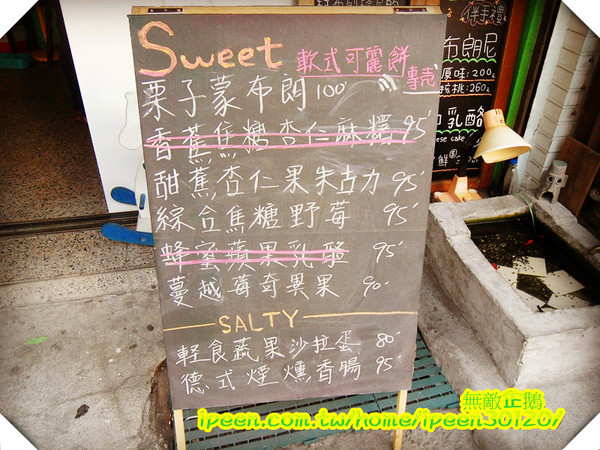 Sweet 軟式可麗餅專売
栗子蒙布朗 100
香蕉焦糖杏仁麻糬 95
甜蕉杏仁果朱古力 95
綜合焦糖野莓 95
蜂蜜蘋果乳酪 95
蔓越莓奇異果 90
SALTY
輕食蔬果沙拉蛋 80
德式煙燻香腸 95
伴手禮
布朗尼
原味:200
核桃:260
乳酪
ese cake
無敵企鵝
ipeen.com.tw/home/ipeen30120/